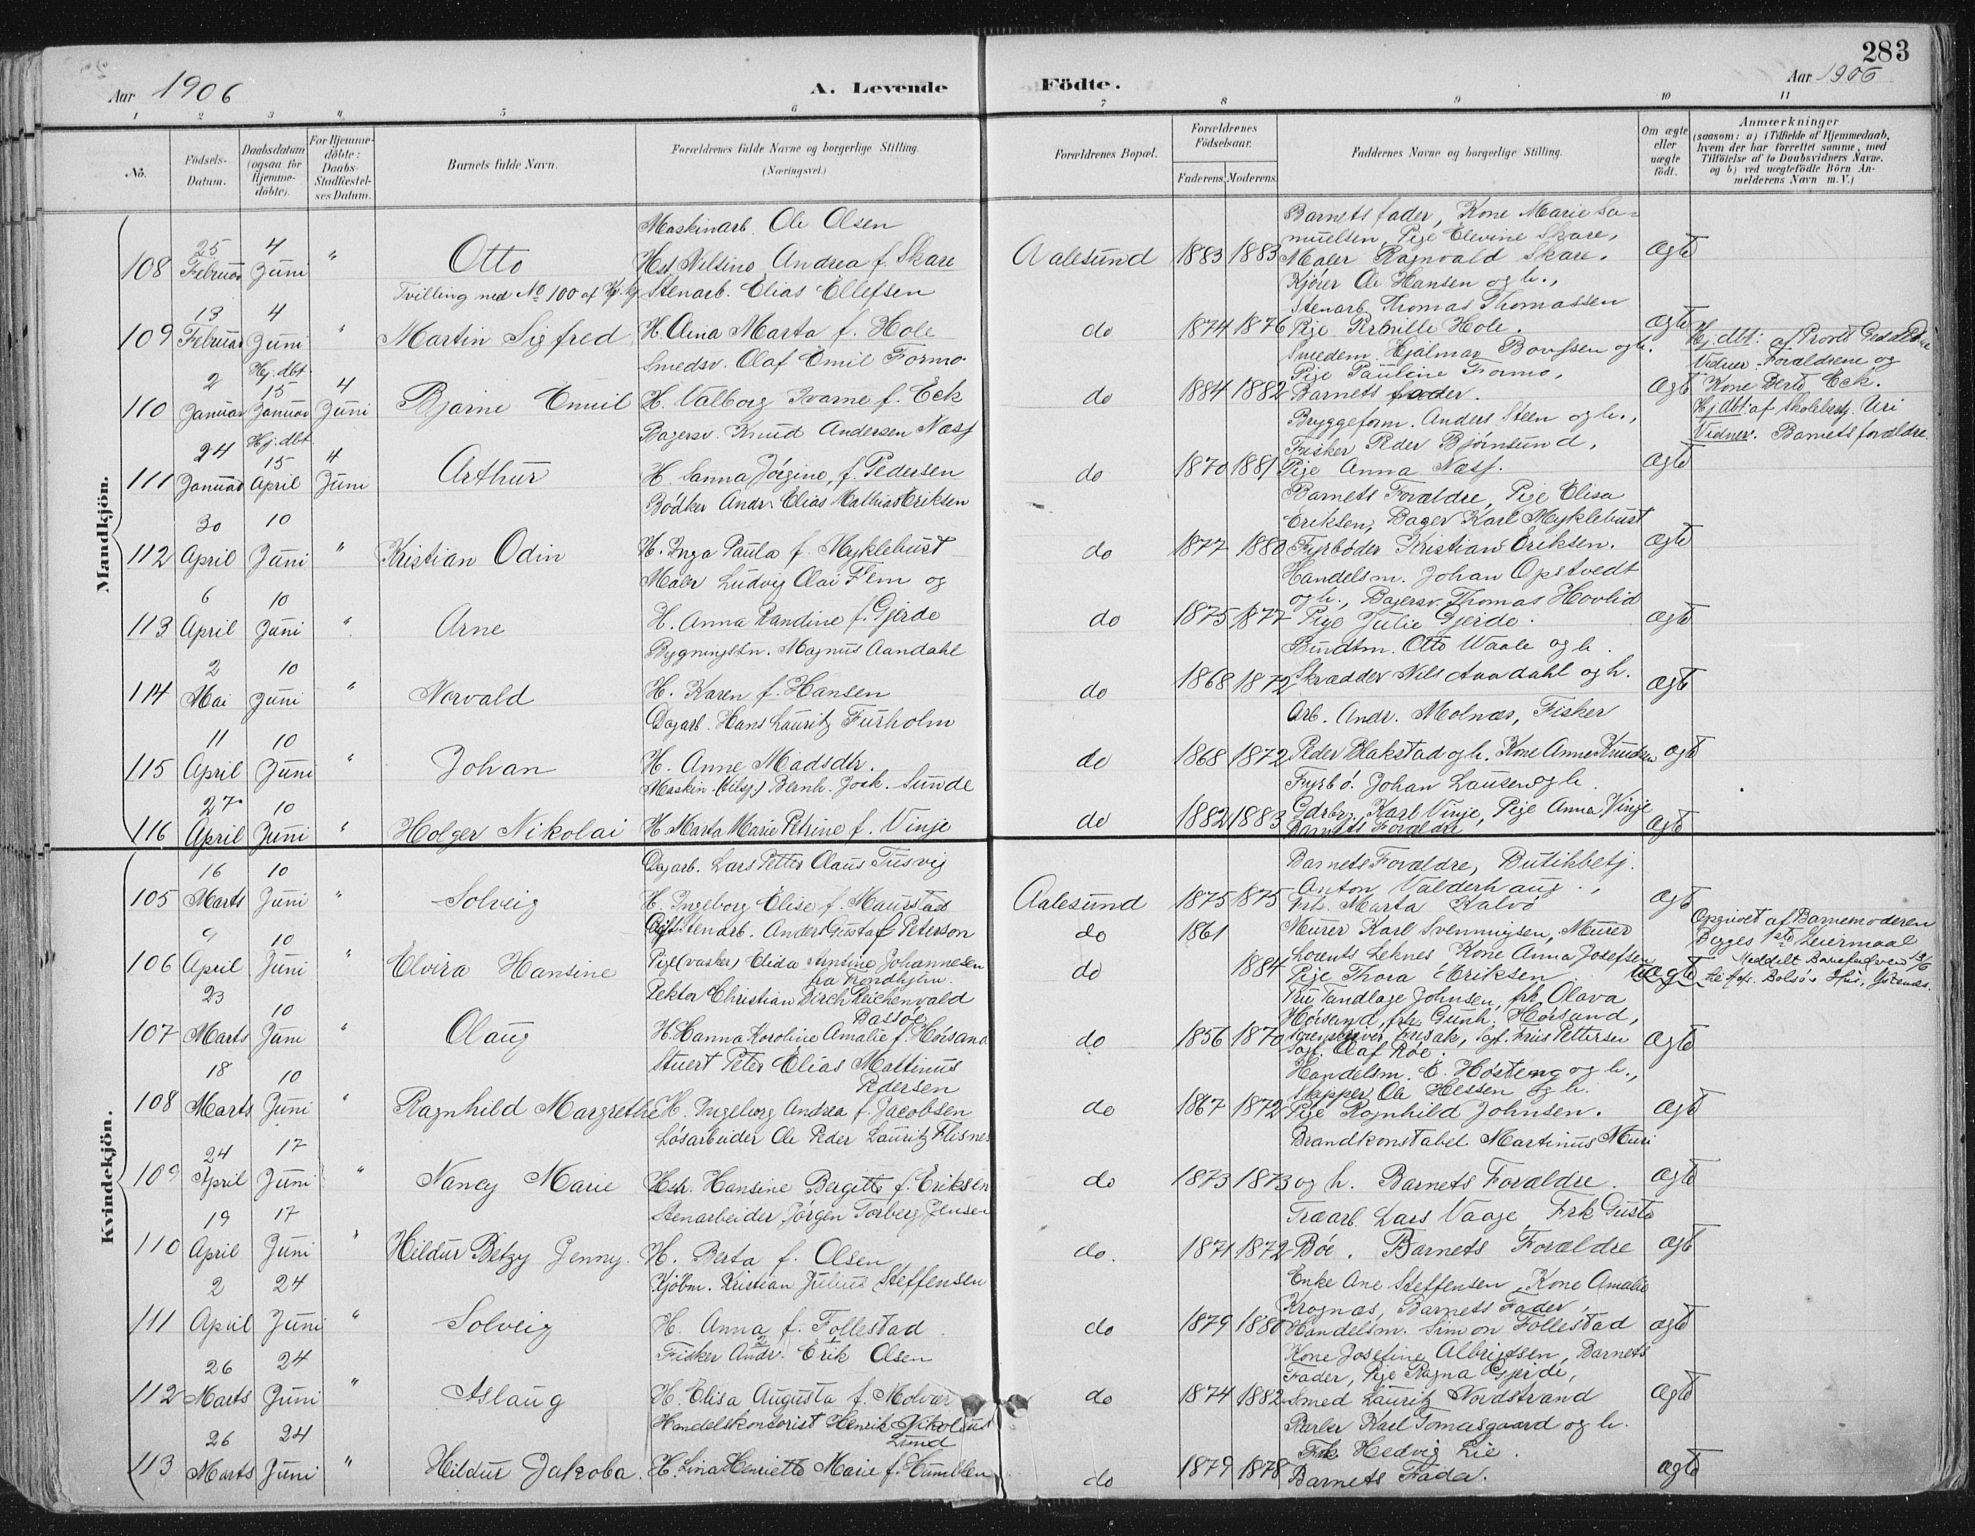 283
Aar 1906 A. Levende Födte. Aar 1906
1 2 3 4 5 6 7 8 9 10 11
No. Födsels-Datum. Daabsdatum (ogsaa for Hjemme-döbte). For Hjemme-döbte: Daabs-Stadfæstel-ses Datum. Barnets fulde Navn. Forældrenes fulde Navne og borgerlige Stilling. (Næringsvei.) Forældrenes Bopæl. Forældrenes Födselsaar. Faderens. Moderens. Faddernes Navne og borgerlige Stilling. Om ægte eller uægte födt. Anmærkninger (saasom: a) i Tilfælde af Hjemmedaab, hvem der har forrettet samme, med Tilföielse af to Daabsvidners Navne. og b) ved uægtefödte Börn An-melderens Navn m. V.)
Mandkjön.
108 25 Februar 4 Juni " Otto
Maskinarb. Ole Olsen
Hst Nilsine Andrea f. Skare
Aalesund 1883 1883
Barnets fader, Kone Marie Sa-
muelsen, Pige Elevine Skare,
Maler Ragnvald Skare.
Ægte
109 13 Februar 4 Juni " Martin Sigfred
Tvilling med No 100 af
Stenarb. Elias Ellefsen
H. Marta f. Hole
do 1874 1876
Kjører Ole Hansen og h.,
Stenarb Thomas Thomassen
Pige Hole.
Ægte
110 2 Januar Hj. dbt 15 Januar 4 Juni Bjarne Emil
Smedsv. Olaf Emil Formo
H. Valborg Ivarne f. Eck
do 1884 1882
Smedem. Hjalmar og h.
Pige Pauline Formo,
Barnets fader.
Ægte
Hj. dbt: af Provst
Vidner: Forældrene og
Kone Berte Eck.
111 24 Januar Hj. dbt 15 April 4 Juni Arthur
Bagersv. Knud Andersen Næsj
H. Sanna Jørgine f. Pedersen
do 1870 1881
Bryggeform. Anders Steen og h.,
Fisker Peder Bjørnsund,
Pige Anna Næsj.
Ægte
Hj. dbt: af Skolebest. Uri
Vidner. Barnets forældre.
112 30 April 10 Juni " Kristian Odin
Bødker Andr. Elias Mathias Eriksen
H. Inga Paula f. Myklebust
do 1877 1880
Barnets Forældre, Pige Elisa
Eriksen, Bager Karl Myklebust
Fyrbøder Kristian Eriksen.
Ægte
113 6 April 10 Juni " Arne
Maler Ludvig Olai Flem og
H. Anna Randine f. Gjerde
do 1875 1877
Handelsm. Johan Opstvedt
og h., Bagersv. Thomas Hovlid
Pige Julie Gjerde.
Ægte
114 2 Mai 10 Juni " Norvald
Bygningssn. Magnus Aandahl
H. Karen f. Hansen
do 1868 1872
Bundtm. Otto Waale og h.
Skrædder Nils Aandahl og h.
Ægte
115 11 April 10 Juni " Johan
Dagarb. Hans Lauritz Furholm
H. Anne Madsdtr.
do 1868 1872
Arb. Andr. Molnæs, Fisker
Peder Blakstad og h. Kone Anne Knudsen
Ægte
116 27 April 10 Juni " Holger Nikolai
Maskin. Bernh. Joak. Sunde
H. Marta Marie Petrine f. Vinje
do 1882 1883
Fyrbø. Johan Lausen og h.
Gdrbr. Karl Vinje, Pige Anna Vinje
Barnets Forældre
Ægte
Kvindekjön.
105 16 Marts 10 Juni " Solveig
Dagarb. Lars Petter Olaus Tusvig
H. Ingeborg Elise f. Maurstad
Aalesund 1875 1875
Barnets Forældre, Butikbetj.
Anton Valderhaug,
Frk. Marta Kalvø
Ægte
106 9 April 10 Juni " Elvira Hansine
Gift Stenarb. Anders Gustaf Peterson
Pige (vasker) Elida Antine Johannesen
fra Trondhjem
do 1861
do 1884
Murer Karl Svenningsen, Murer
Lorents Leknes Kone Anna Josefsen
Pige Thora Eriksen
uægte
Opgivet af Barnemoderen
Begges 1ste Leiermaal
Meddelt 13/6
107 23 Marts 10 Juni " Olaug
Rektor Christian Birch Reichenvald
Bassøe
H. Hanna Karoline Amalie f. Hørsand
do 1856 1870
Fru Tandlæge Johnsen, frk Olava
Hørsand, frk Gunh. Hørsand,
Sagf. Friis Pettersen
Sagf. Olaf Røe.
Ægte
108 18 Marts 10 Juni " Ragnhild Margrethe
Stuert Peter Elias Mattinus
Pedersen
H. Ingeborg Andrea f. Jacobsen
do 1867 1872
Handelsm. E. Høsteng og h.,
Skipper Ole Hessen og h.
Pige Ragnhild Johnsen.
Ægte
109 24 April 17 Juni " Nancy Marie
Løsarbeider Ole Peder Lauritz Flisnes
Hstr. Hansine Bergitte f. Eriksen
do 1873 1873
Brandkonstabel Martinus Muri
og h. Barnets Forældre.
Ægte
110 19 April 17 Juni " Hildur Betzy Jenny.
Stenarbeider Jørgen Torberg Jensen
H. Berta f. Olsen
do. 1871 1872
Træarb. Lars Vaage, Frk Gusta
Bøe. Barnets Forældre
Ægte
111 2 April 24 Juni " Solveig
Kjøbm. Kristian Julius Steffensen
H. Anna f. Follestad
do 1879 1880
Enke Ane Steffensen, Kone Amalie
Krognæs, Barnets Fader,
Handelsm. Simon Follestad
Ægte
112 26 Marts 24 Juni " Aslaug
Fisker Andr. Erik Olsen
H. Elisa Augusta f. Molvær
do 1874 1882
Kone Josefine Albrigtsen, Barnets
Fader, Pige Ragna Gjerde,
Smed Lauritz Nordstrand
Ægte
113 26 Marts 24 Juni " Hildur Jakoba
Handelskontorist Henrik Nikolaus
Lund
H. Lina Henriette Marie f. Humblen
do 1879 1878
Barber Karl Tomasgaard og h.
Frk Hedvig Lie.
Barnets Fader.
Ægte